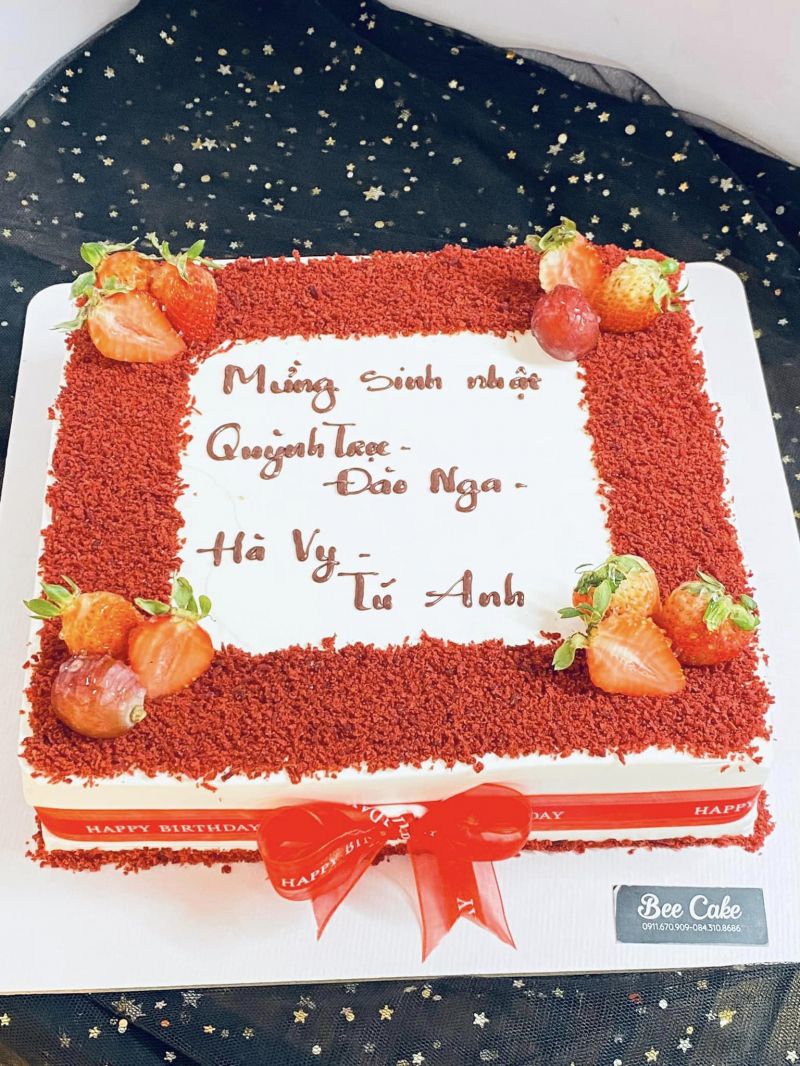 Mừng sinh nhật
Quỳnh Trạc -
Đào Nga -
Hà Vy -
Tú Anh
HAPPY BIRTHDAY
HAPPY BI
DAY
HAPPY
Bee Cake
0911.670.909-084.310.8686